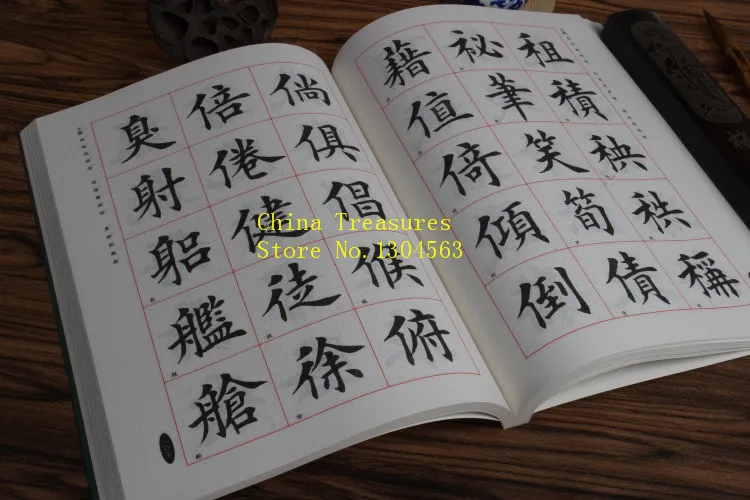 臭 倍 倘
射 倦 俱
躬 健 倡
艦 徒 候
艙 徐 俯
藉 祕 租
值 筆 積
倚 笑 秧
傾 筍 秩
倒 債 稱
China Treasures
Store No.1304563